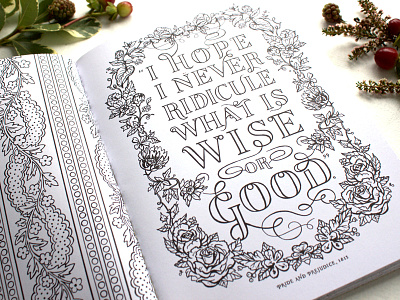 "I HOPE
I NEVER
RIDICULE
WHAT IS
WISE
OR
GOOD."
PRIDE AND PREJUDICE, 1813